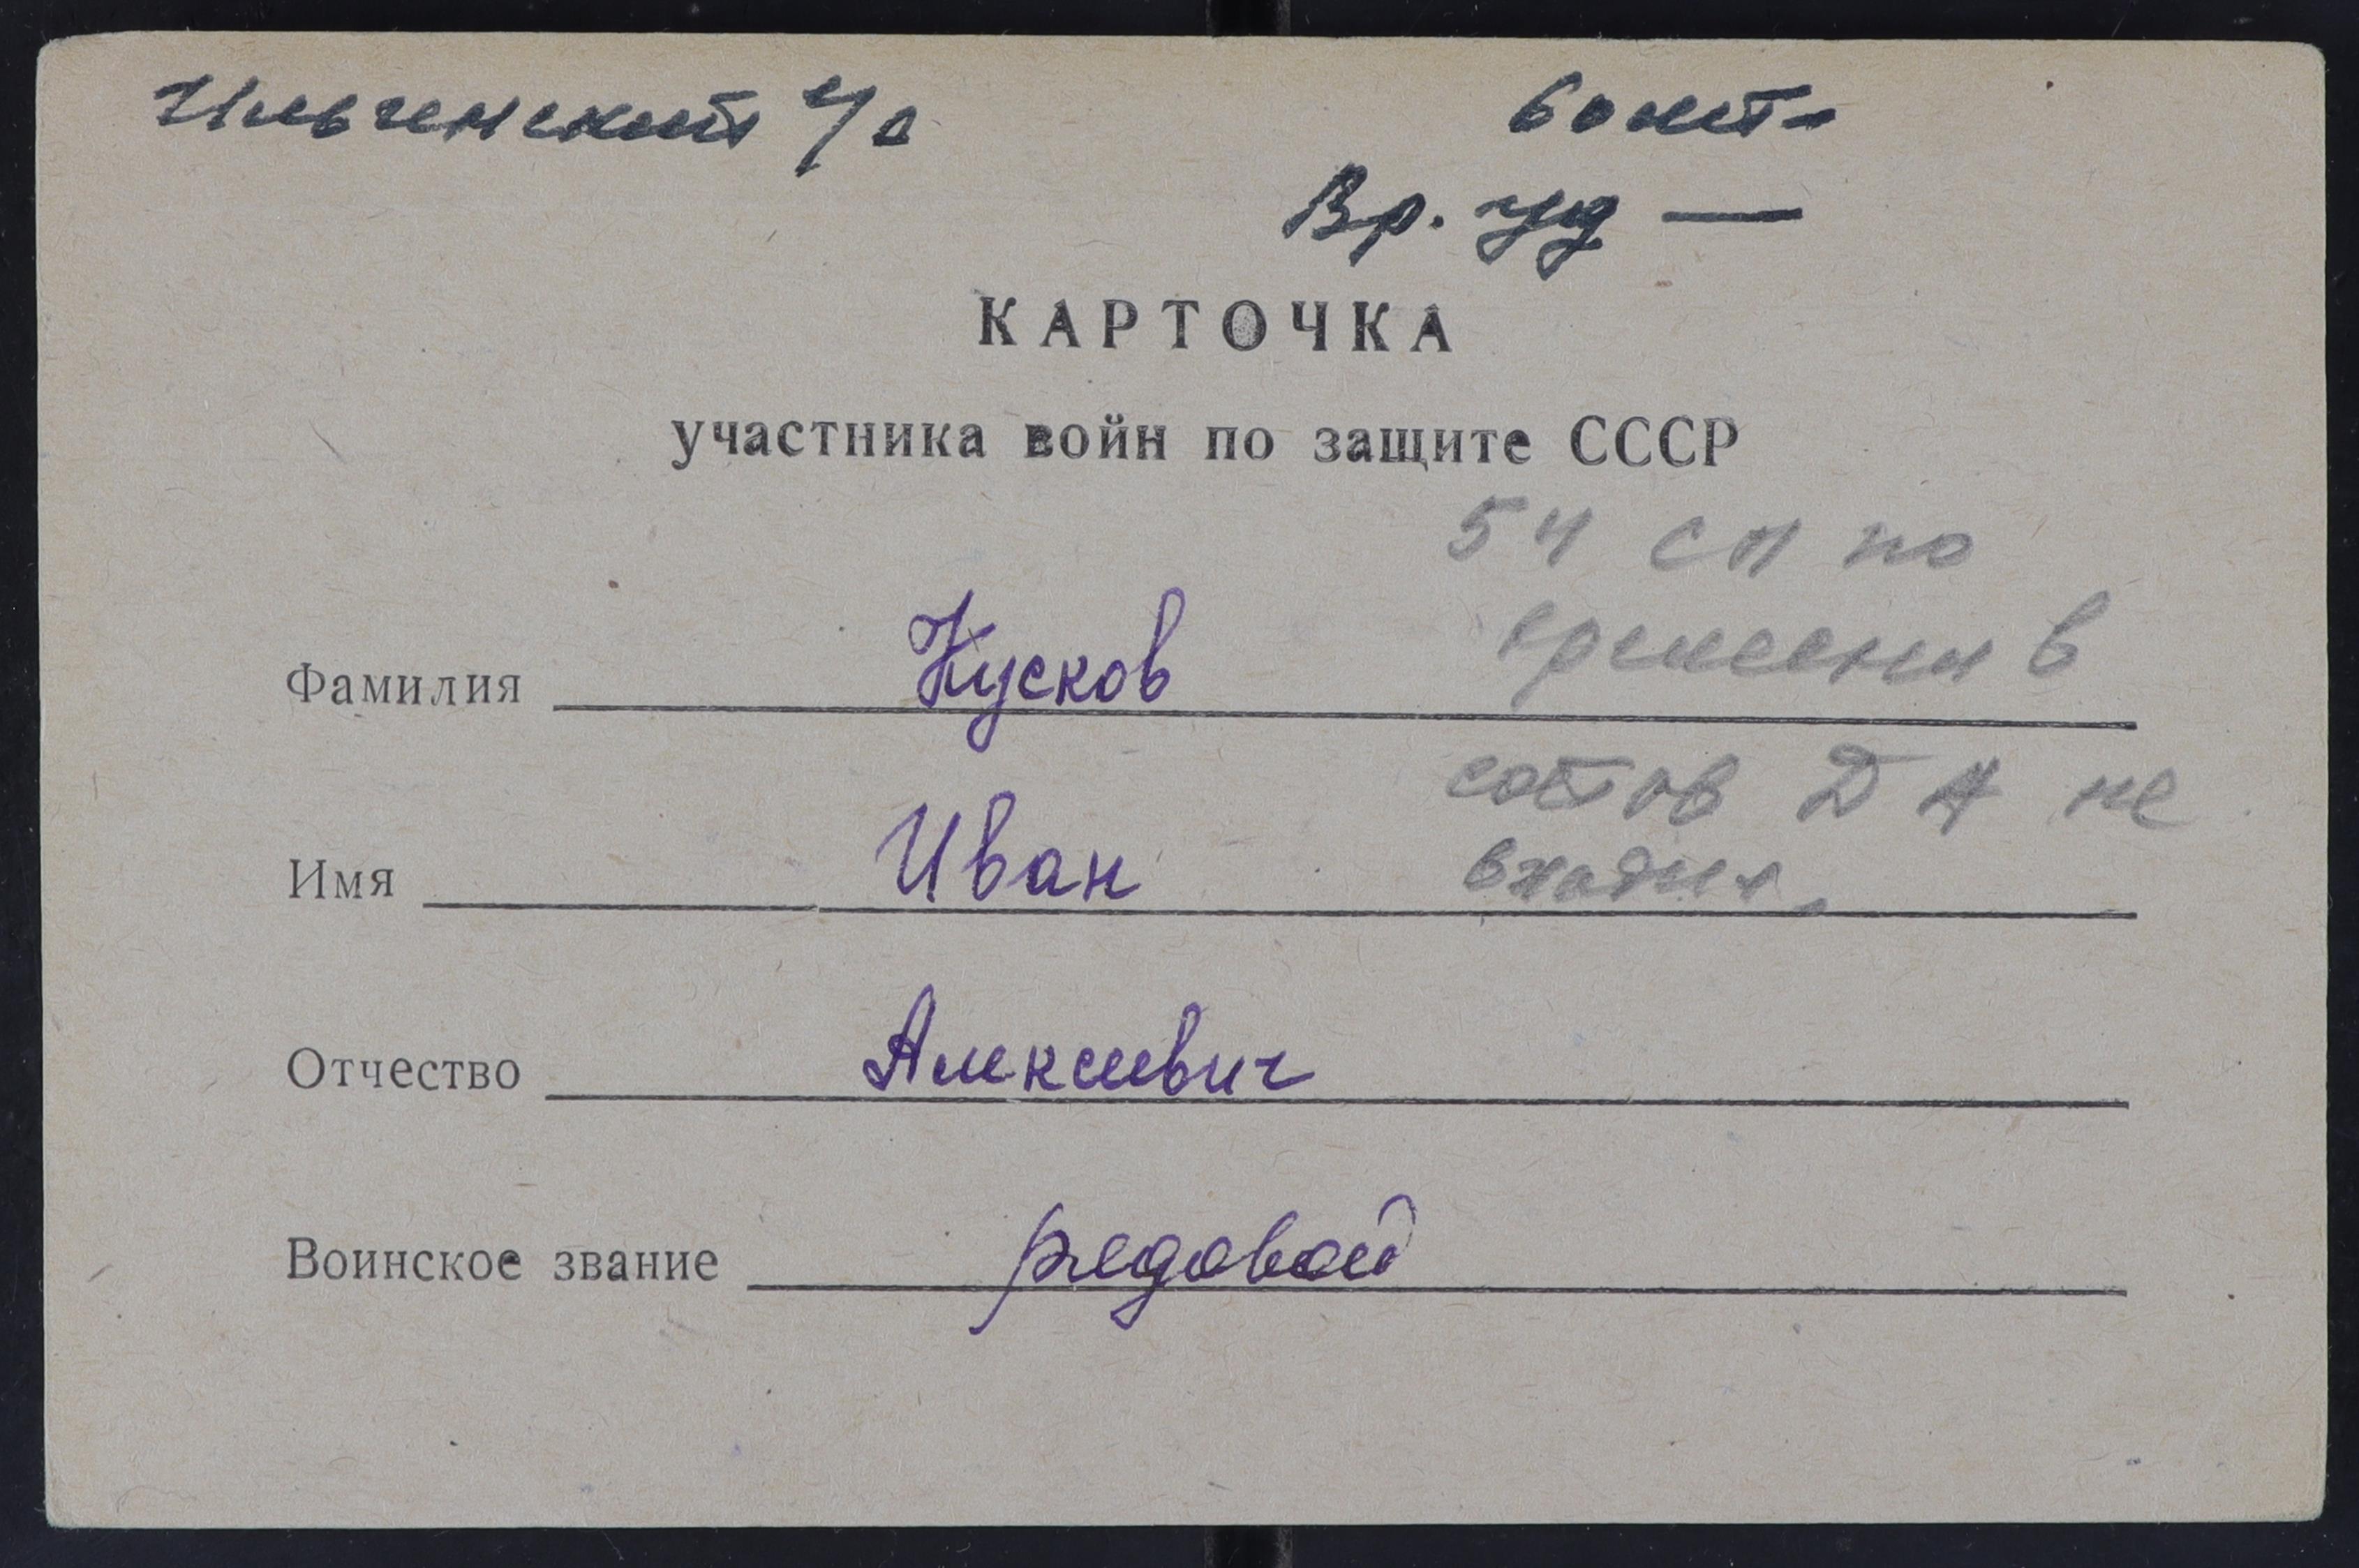 Ильченский с/с
Вр. уд —
КАРТОЧКА
участника войн по защите СССР
54 сп по
времени в
состав ДА не
входил.
Фамилия Кусков
Имя Иван
Отчество Алексеевич
Воинское звание рядовой